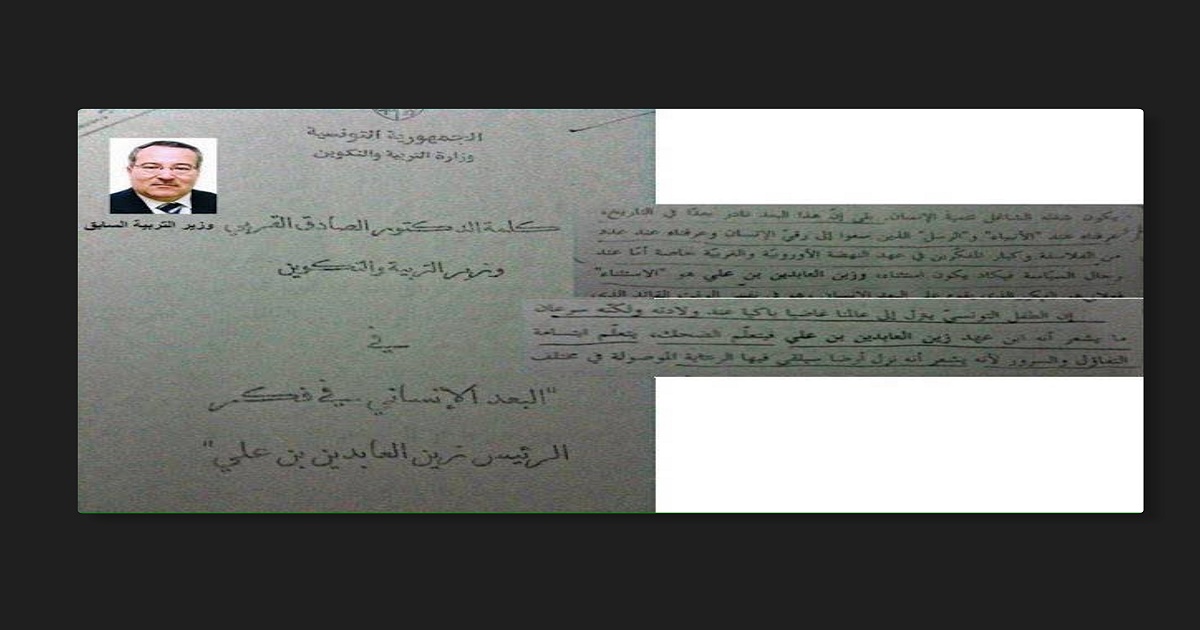 الجمهورية التونسية
وزارة التربية والتكوين
كلمة الدكتور الصادق القربي
وزير التربية السابق
وزير التربية والتكوين
في
"البعد الإنساني في فكر
الرئيس زين العابدين بن علي"
يكون شغله الشاغل تنمية الإنسان. بقي إنّ هذا البعد نادر جدّا في التاريخ،
عرفناه عند "الأنبياء" و"الرسل" الذين سعوا إلى رقيّ الإنسان وعرفناه عند عدد
من الفلاسفة وكبار المفكّرين في عهد النهضة الأوروبيّة والغربيّة خاصة أمّا عند
رجال السيّاسة فيكاد يكون استثناء، وزين العابدين بن علي هو "الاستثناء"
إن الطفل التونسيّ ينزل إلى عالمنا غاضبا باكيا عند ولادته ولكنّه سرعان
ما يشعر أنه ابن عهد زين العابدين بن علي فيتعلّم الضحك، يتعلّم ابتسامة
التفاؤل والسرور لأنه يشعر أنه نزل أرضا سيلقى فيها الرعاية الموصولة في مختلف